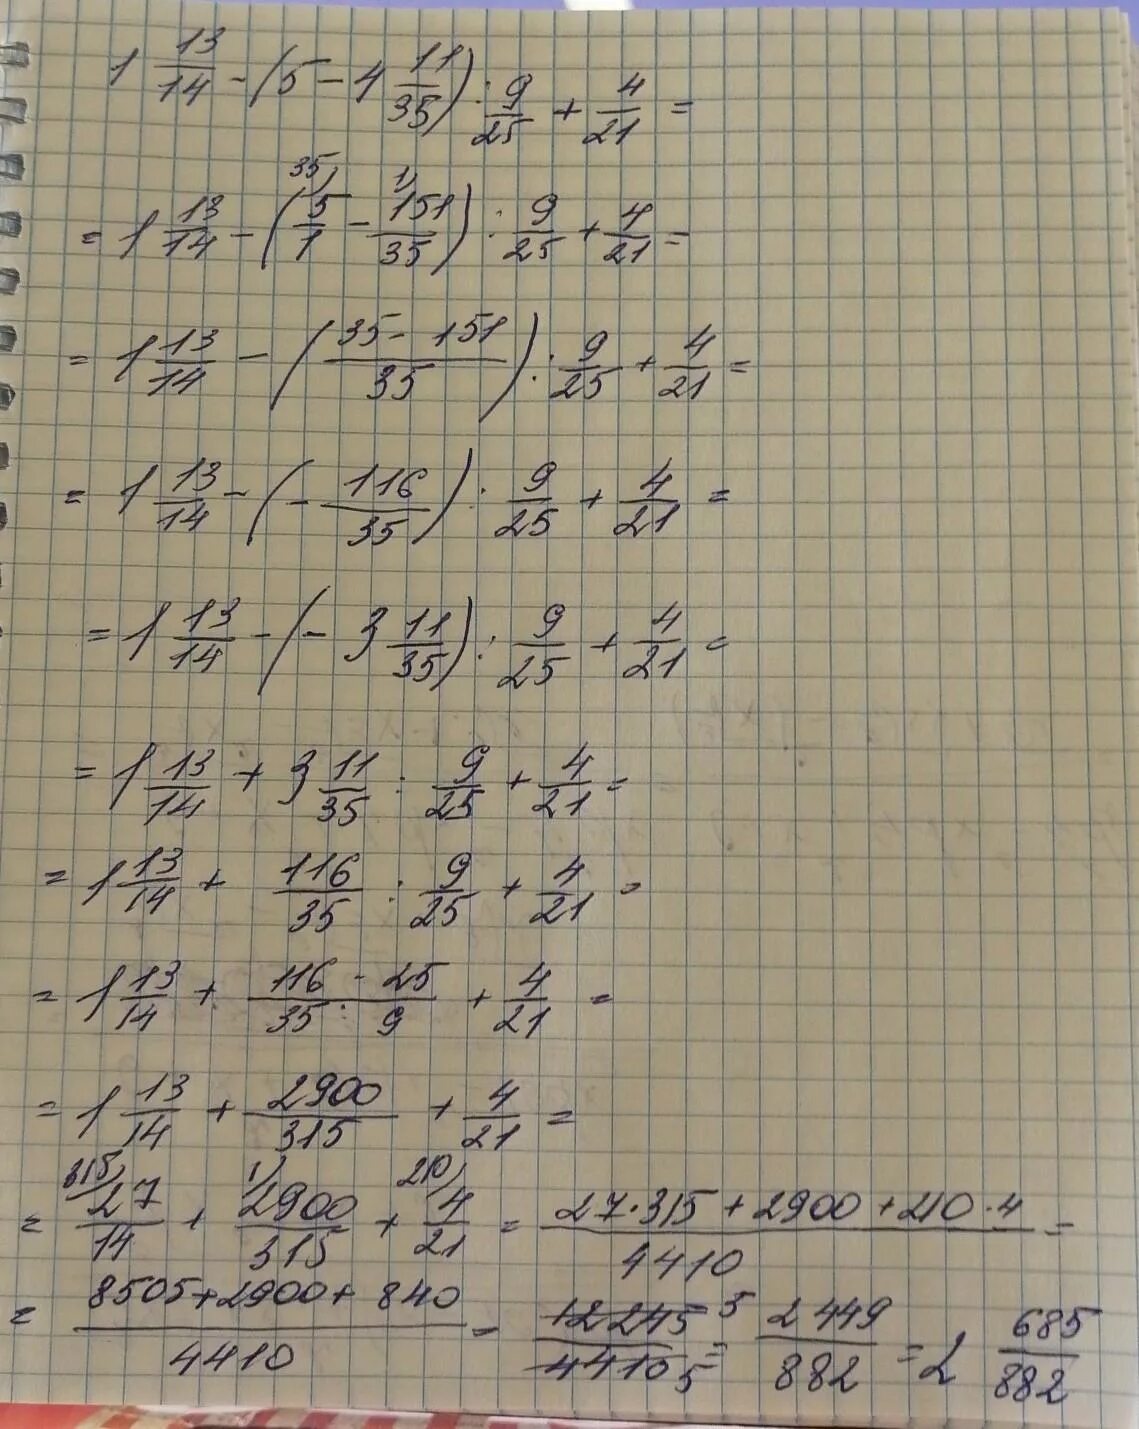 1 13/14 - (5 - 4 11/35) : 9/25 + 4/21 =
= 1 13/14 - (35) 5/1 - 1) 151/35) : 9/25 + 4/21 =
= 1 13/14 - (35 - 151 / 35) : 9/25 + 4/21 =
= 1 13/14 - (- 116/35) : 9/25 + 4/21 =
= 1 13/14 - (- 3 11/35) : 9/25 + 4/21 =
= 1 13/14 + 3 11/35 : 9/25 + 4/21 =
= 1 13/14 + 116/35 : 9/25 + 4/21 =
= 1 13/14 + 116 · 25 / 35 · 9 + 4/21 =
= 1 13/14 + 2900/315 + 4/21 =
= 315) 27/14 + 1) 2900/315 + 210) 4/21 = 27·315 + 2900 + 210·4 / 4410 =
= 8505 + 2900 + 840 / 4410 = 12245 5 / 4410 5 = 2449/882 = 2 685/882